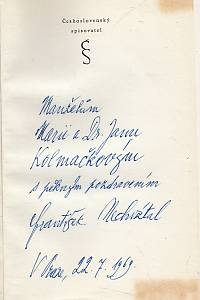 Československý
spisovatel
ČS
Manželům
Marii a Dr. Janu
Kolmačkovým
s pěkným pozdravením
František Nechvátal
V Praze, 22. 7. 1969.